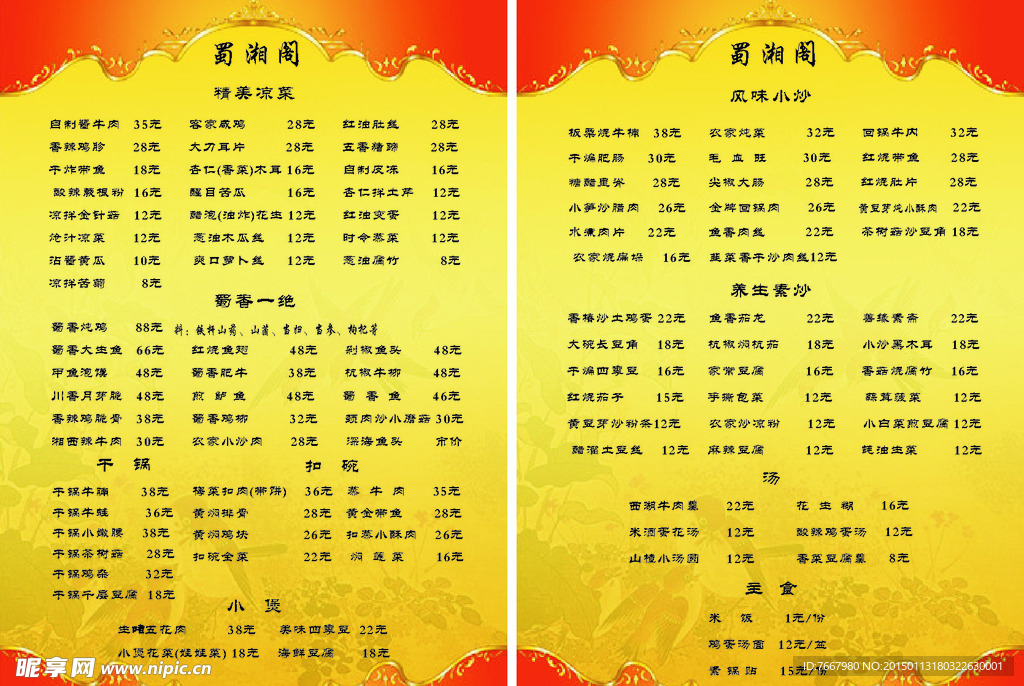 蜀湘阁
精美凉菜
自制酱牛肉 35元 客家咸鸡 28元 红油肚丝 28元
香辣鸡胗 28元 大刀耳片 28元 五香猪蹄 28元
干炸带鱼 18元 杏仁(香菜)木耳 16元 自制皮冻 16元
酸辣蕨根粉 16元 醒目苦瓜 16元 杏仁拌土芹 12元
凉拌金针菇 12元 醋泡(油炸)花生 12元 红油变蛋 12元
炝汁凉菜 12元 葱油木瓜丝 12元 时令蒸菜 12元
沾酱黄瓜 10元 爽口萝卜丝 12元 葱油腐竹 8元
凉拌苦菊 8元
蜀香一绝
蜀香炖鸡 88元 料：铁杆山药、山菌、当归、当参、枸杞等
蜀香大生鱼 66元 红烧鱼翅 48元 剁椒鱼头 48元
甲鱼泡馍 48元 蜀香肥牛 38元 杭椒牛柳 48元
川香月芽脆 48元 煎鲈鱼 48元 蜀香鱼 46元
香辣鸡脆骨 38元 蜀香鸡柳 32元 颈肉炒小蘑菇 30元
湘西辣牛肉 30元 农家小炒肉 28元 深海鱼头 市价
干锅
干锅牛腩 38元
干锅牛蛙 36元
干锅小嫩腰 38元
干锅茶树菇 28元
干锅鸡杂 32元
干锅千层豆腐 18元
扣碗
梅菜扣肉(带饼) 36元 蒸牛肉 35元
黄焖排骨 28元 黄金带鱼 28元
黄焖鸡块 26元 扣蒸小酥肉 26元
扣碗全菜 22元 焖莲菜 16元
小煲
生啫五花肉 38元 美味四季豆 22元
小煲花菜(娃娃菜) 18元 海鲜豆腐 18元
蜀湘阁
风味小炒
板栗烧牛楠 38元 农家炖菜 32元 回锅牛肉 32元
干煸肥肠 30元 毛血旺 30元 红烧带鱼 28元
糖醋里脊 28元 尖椒大肠 28元 红烧肚片 28元
小笋炒腊肉 26元 金牌回锅肉 26元 黄豆芽炖小酥肉 22元
水煮肉片 22元 鱼香肉丝 22元 茶树菇炒豆角 18元
农家烧扁垛 16元 韭菜香干炒肉丝 12元
养生素炒
香椿炒土鸡蛋 22元 鱼香茄龙 22元 善缘素斋 22元
大碗长豆角 18元 杭椒焖杭茄 18元 小炒黑木耳 18元
干煸四季豆 16元 家常豆腐 16元 香菇烧腐竹 16元
红烧茄子 15元 手撕包菜 12元 蒜茸菠菜 12元
黄豆芽炒粉条 12元 农家炒凉粉 12元 小白菜煎豆腐 12元
醋溜土豆丝 12元 麻辣豆腐 12元 蚝油生菜 12元
汤
西湖牛肉羹 22元 花生糊 16元
米酒蛋花汤 12元 酸辣鸡蛋汤 12元
山楂小汤圆 12元 香菜豆腐羹 8元
主食
米饭 1元/份
鸡蛋汤面 12元/盆
素锅贴 15元/份
昵享网 www.nipic.cn
ID:7667980 NO:20150113180322630001